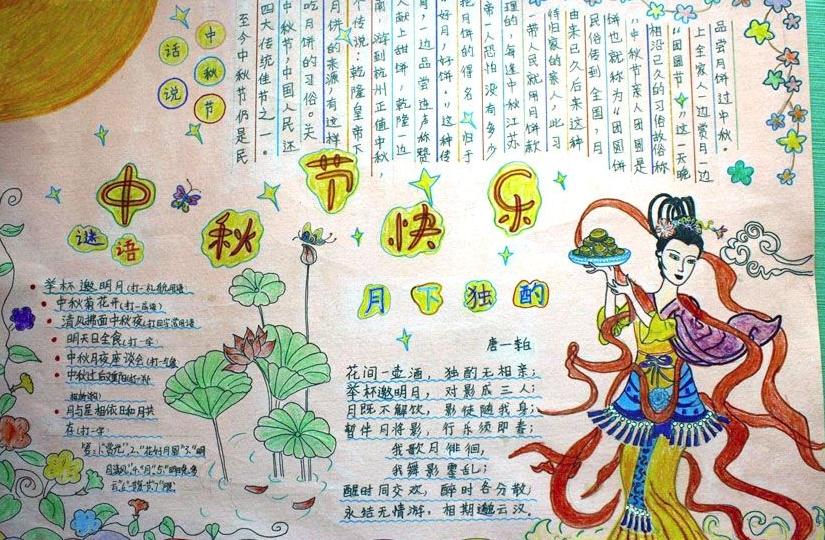 话说
中秋节
品尝月饼过中秋。
上全家人一边赏月一边
"团圆节"这一天晚
相沿已久的习俗故俗称
"中秋节亲人团圆是
饼也就称为"团圆饼
民俗传到全国,月
由来已久后来这种
待归家的亲人,此习
一带人民就用月饼款
理的,每逢中秋江苏
帝一人恐怕没有多少
把月饼的得名归于
"好月,好饼。"这种传
月,一边品尝连声称赞
人献上甜饼,乾隆一边
南,游到杭州正值中秋,
个传说:乾隆皇帝下
月饼的来源,有这样
吃月饼的习俗。关
中秋节,中国人民还
四大传统佳节之一。
至今中秋节仍是民
中秋节快乐
谜语
举杯邀明月(打一礼貌用语)
中秋菊花开(打一成语)
清风拂面中秋夜(打四字常用语)
明天日全食(打一字)
中秋月夜座谈会(打一
月与星相依日和月共
在(打一字)
月下独酌
唐-李白
花间一壶酒,独酌无相亲;
举杯邀明月,对影成三人;
月既不解饮,影徒随我身;
暂伴月将影,行乐须即春;
我歌月徘徊,
我舞影零乱;
醒时同交欢,醉时各分散;
永结无情游,相期邈云汉。